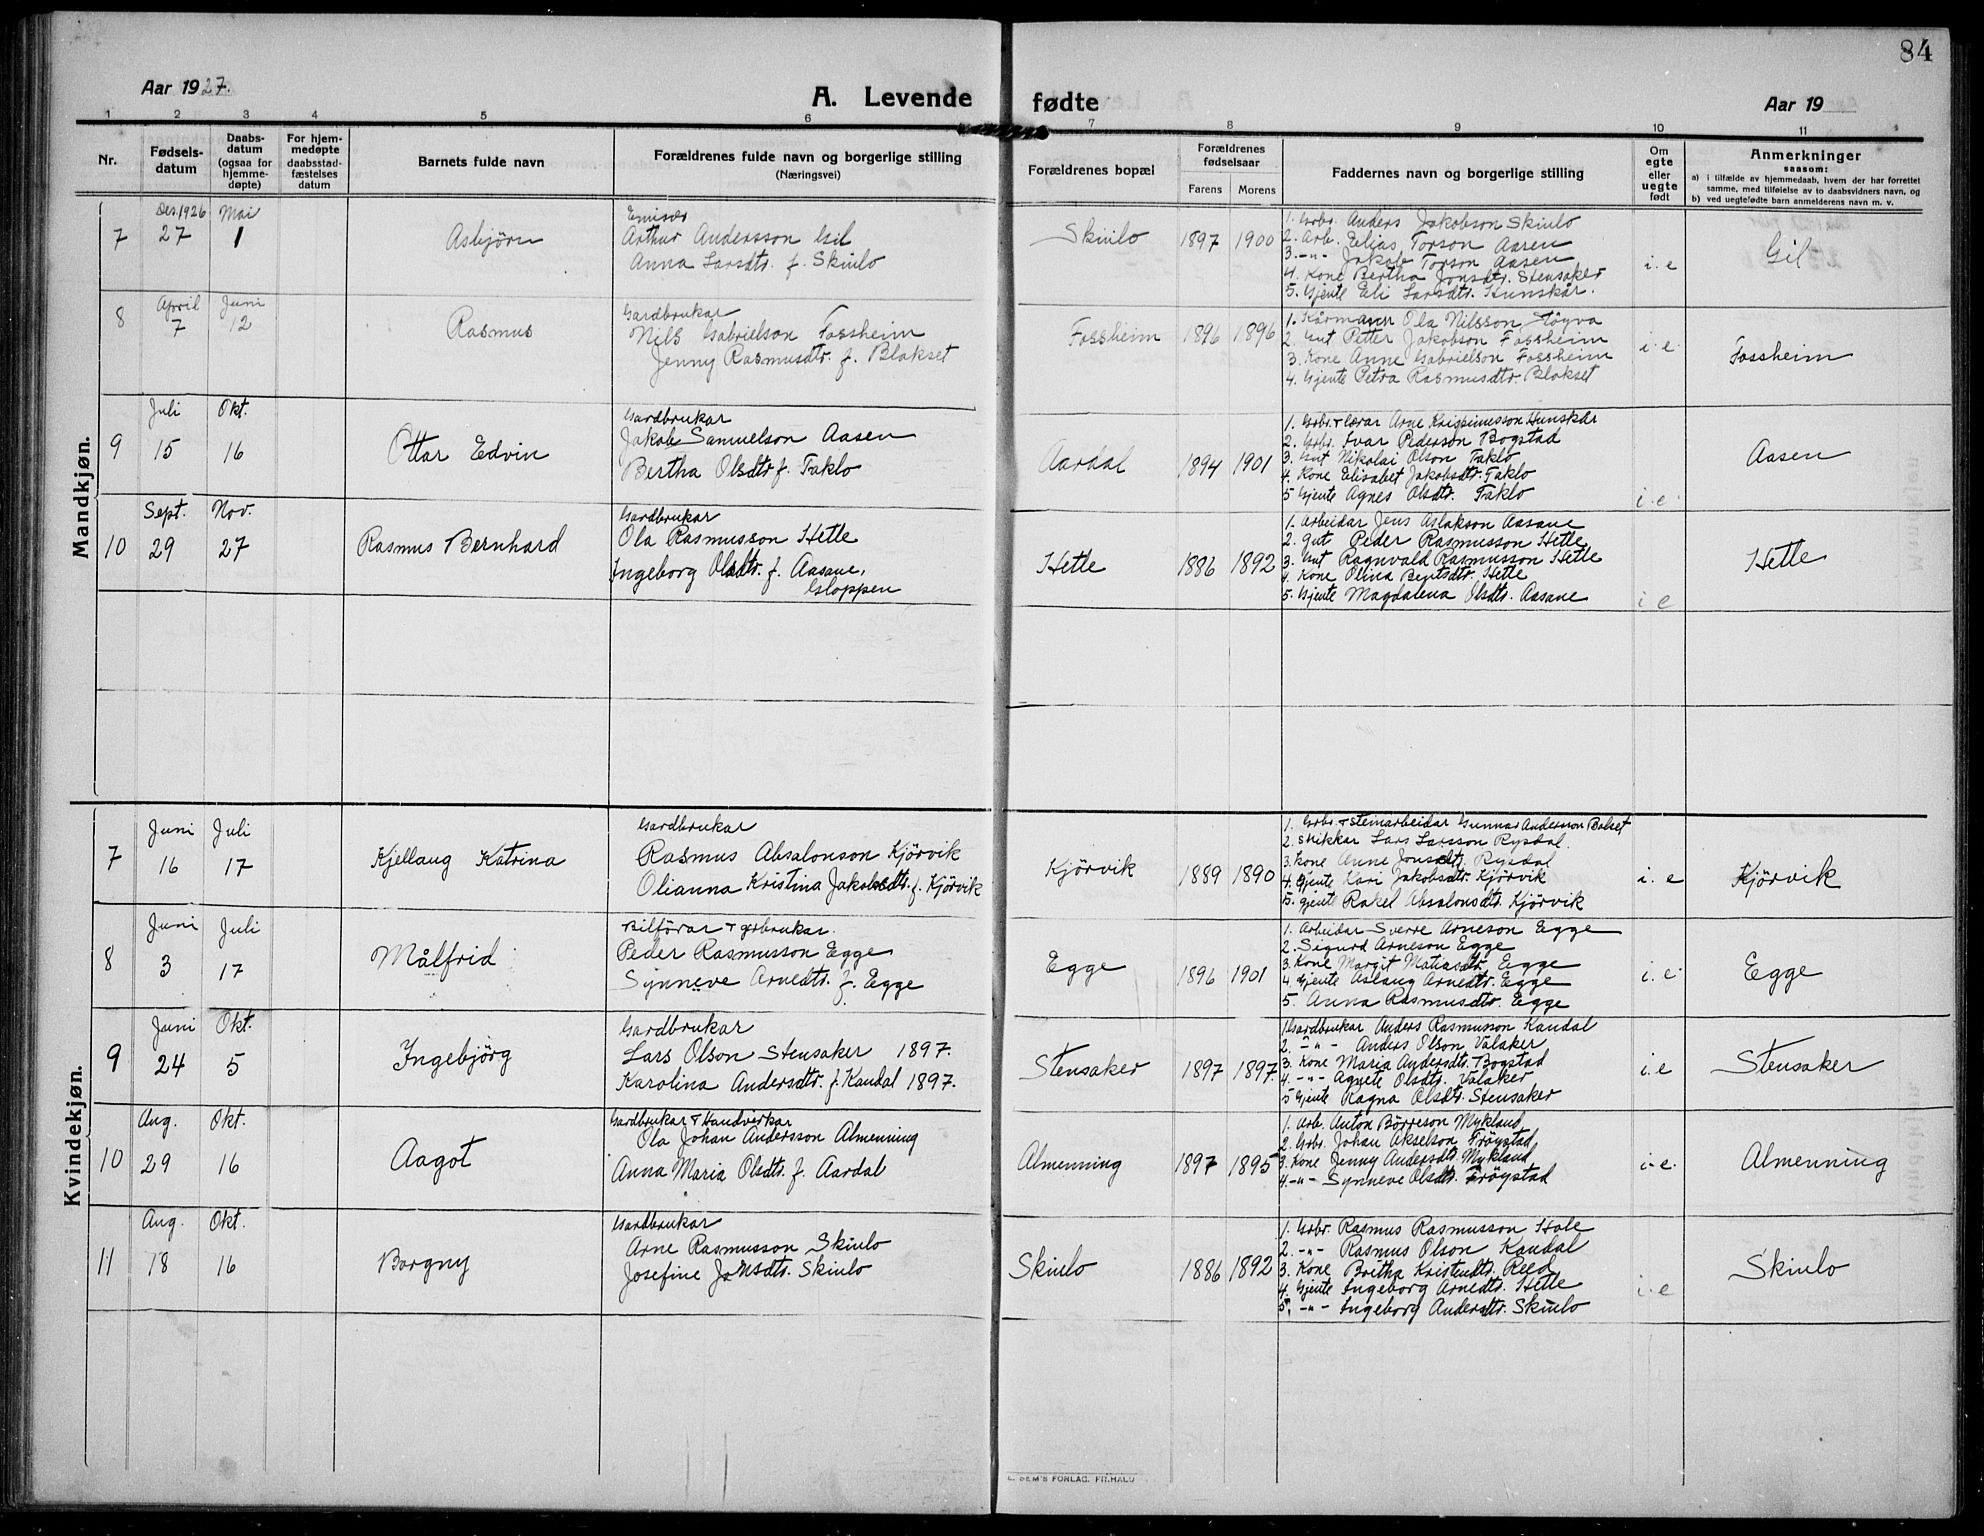 84
Aar 1927.
A. Levende fødte
Aar 19
1 2 3 4 5 6 7 8 9 10 11
Nr.
Fødsels-
datum
Daabs-
datum
(ogsaa for
hjemme-
døpte)
For hjem-
medøpte
daabsstad-
fæstelses
datum
Barnets fulde navn
Forældrenes fulde navn og borgerlige stilling
(Næringsvei)
Forældrenes bopæl
Forældrenes
fødselsaar
Farens Morens
Faddernes navn og borgerlige stilling
Om
egte
eller
uegte
født
Anmerkninger
saasom:
a) i tilfælde av hjemmedaab, hvem der har forrettet
samme, med tilføielse av to daabsvidners navn, og
b) ved uegtefødte barn anmelderens navn m. v.
Mandkjøn.
7
Des. 1926
27
Mai
1
Asbjörn
Emisær
Arthur Andersson Gil
Anna Larsdtr. f. Skinlo
Skinlo
1897 1900
1. Grbr. Anders Jakobson Skinlo
2. Arb. Elias Torson Aasen
3. -"- Jakob Torson Aasen
4. Kone Bertha Jonsdtr. Stensaker
5. Gjente Eli Larsdtr. Hunskår.
i. e
Gil
8
April
7
Juni
12
Rasmus
Gardbrukar
Nils Gabrielson Fossheim
Jenny Rasmusdtr. f. Blakset
Fossheim
1896 1896
1. Kårmann Ola Nilsson
2. Gut Petter Jakobson Fossheim
3. Kone Anne Gabrielson Fossheim
4. Gjente Petra Rasmusdtr. Blakset
i. e.
Fossheim
9
Juli
15
Okt.
16
Ottar Edvin
Gardbrukar
Jakob Samuelson Aasen
Bertha Olsdtr. f. Taklo
Aardal
1894 1901
1. Grbr. + lærar Arne Hunskår
2. Grbr. Ivar Pederson Bogstad
3. Gut Nikolai Olson Taklo
4. Kone Elisabet Jakobsdtr. Taklo
5 Gjente Agnes Olsdtr. Taklo
i. e.
Aasen
10
Sept.
29
Nov.
27
Rasmus Bernhard
Gardbrukar
Ola Rasmusson Hetle
Ingeborg Olsdtr. f. Aasane,
Gloppen
Hetle
1886 1892
1. Arbeidar Jens Aslakson Aasane
2. Gut Peder Rasmusson Hetle
3. Gut Ragnvald Rasmusson Hetle
4. Kone Olina Bentsdtr. Hetle
5. Gjente Magdalena Olsdtr. Aasane
i. e
Hetle
Kvindekjøn.
7
Juni
16
Juli
17
Kjellaug Katrina
Gardbrukar
Rasmus Absalonson Kjörvik
Olianna Kristina Jakobsdtr. f. Kjörvik
Kjörvik
1889 1890
1. Grbr. + Steinarbeidar Gunnar Anderson Bolset
2. Skikkar Lars Larsson Rysdal.
3. Kone Anne Jonsdtr. Rysdal
4. Gjente Kari Jakobsdtr. Kjörvik
5. Gjente Rakel Absalonsdtr. Kjörvik
i. e
Kjörvik
8
Juni
3
Juli
17
Målfrid
Bilförar + grbrukar.
Peder Rasmusson Egge
Synneve Arnedtr. f. Egge
Egge
1896 1901
1. Arbeidar Sverre Arneson Egge
2. Sigurd Arneson Egge
3. Kone Margit Matiasdtr. Egge
4. Gjente Aslaug Arnedtr. Egge
5. Anna Rasmusdtr. Egge
i. e.
Egge
9
Juni
24
Okt.
5
Ingebjörg
Gardbrukar
Lars Olson Stensaker 1897.
Karolina Andersdtr. f. Kandal 1897.
Stensaker
1897 1897.
1. Gardbrukar Anders Rasmusson Kandal
2. -"- Anders Olson Valaker
3. Kone Maria Andersdtr. Bogstad
4. -"- Agnete Olsdtr. Valaker
5 Gjente Ragna Olsdtr. Stensaker
i. e
Stensaker
10
Aug.
29
Okt.
16
Aagot
Gardbrukar + Handverkar
Ola Johan Andersson Almenning
Anna Maria Olsdtr. f. Aardal
Almenning
1897 1895
1. Arb. Anton Börreson Mykland
2. Grbr. Johan Akselson Fröystad
3. Kone Jenny Andersdtr. Mykland
4. -"- Synneve Olsdtr. Fröystad
i. e.
Almenning
11
Aug.
18
Okt.
16
Borgny
Gardbrukar
Arne Rasmusson Skinlo
Josefine Jonsdtr. Skinlo
Skinlo
1886 1892
1. Grbr. Rasmus Rasmusson Hole
2. -"- Rasmus Olson Kandal
3. Kone Britha Kristendtr. Reed
4. Gjente Ingeborg Arnedtr. Hetle
5. -"- Ingeborg Andersdtr. Skinlo
i. e
Skinlo
SEM'S FORLAG, FR.HALD